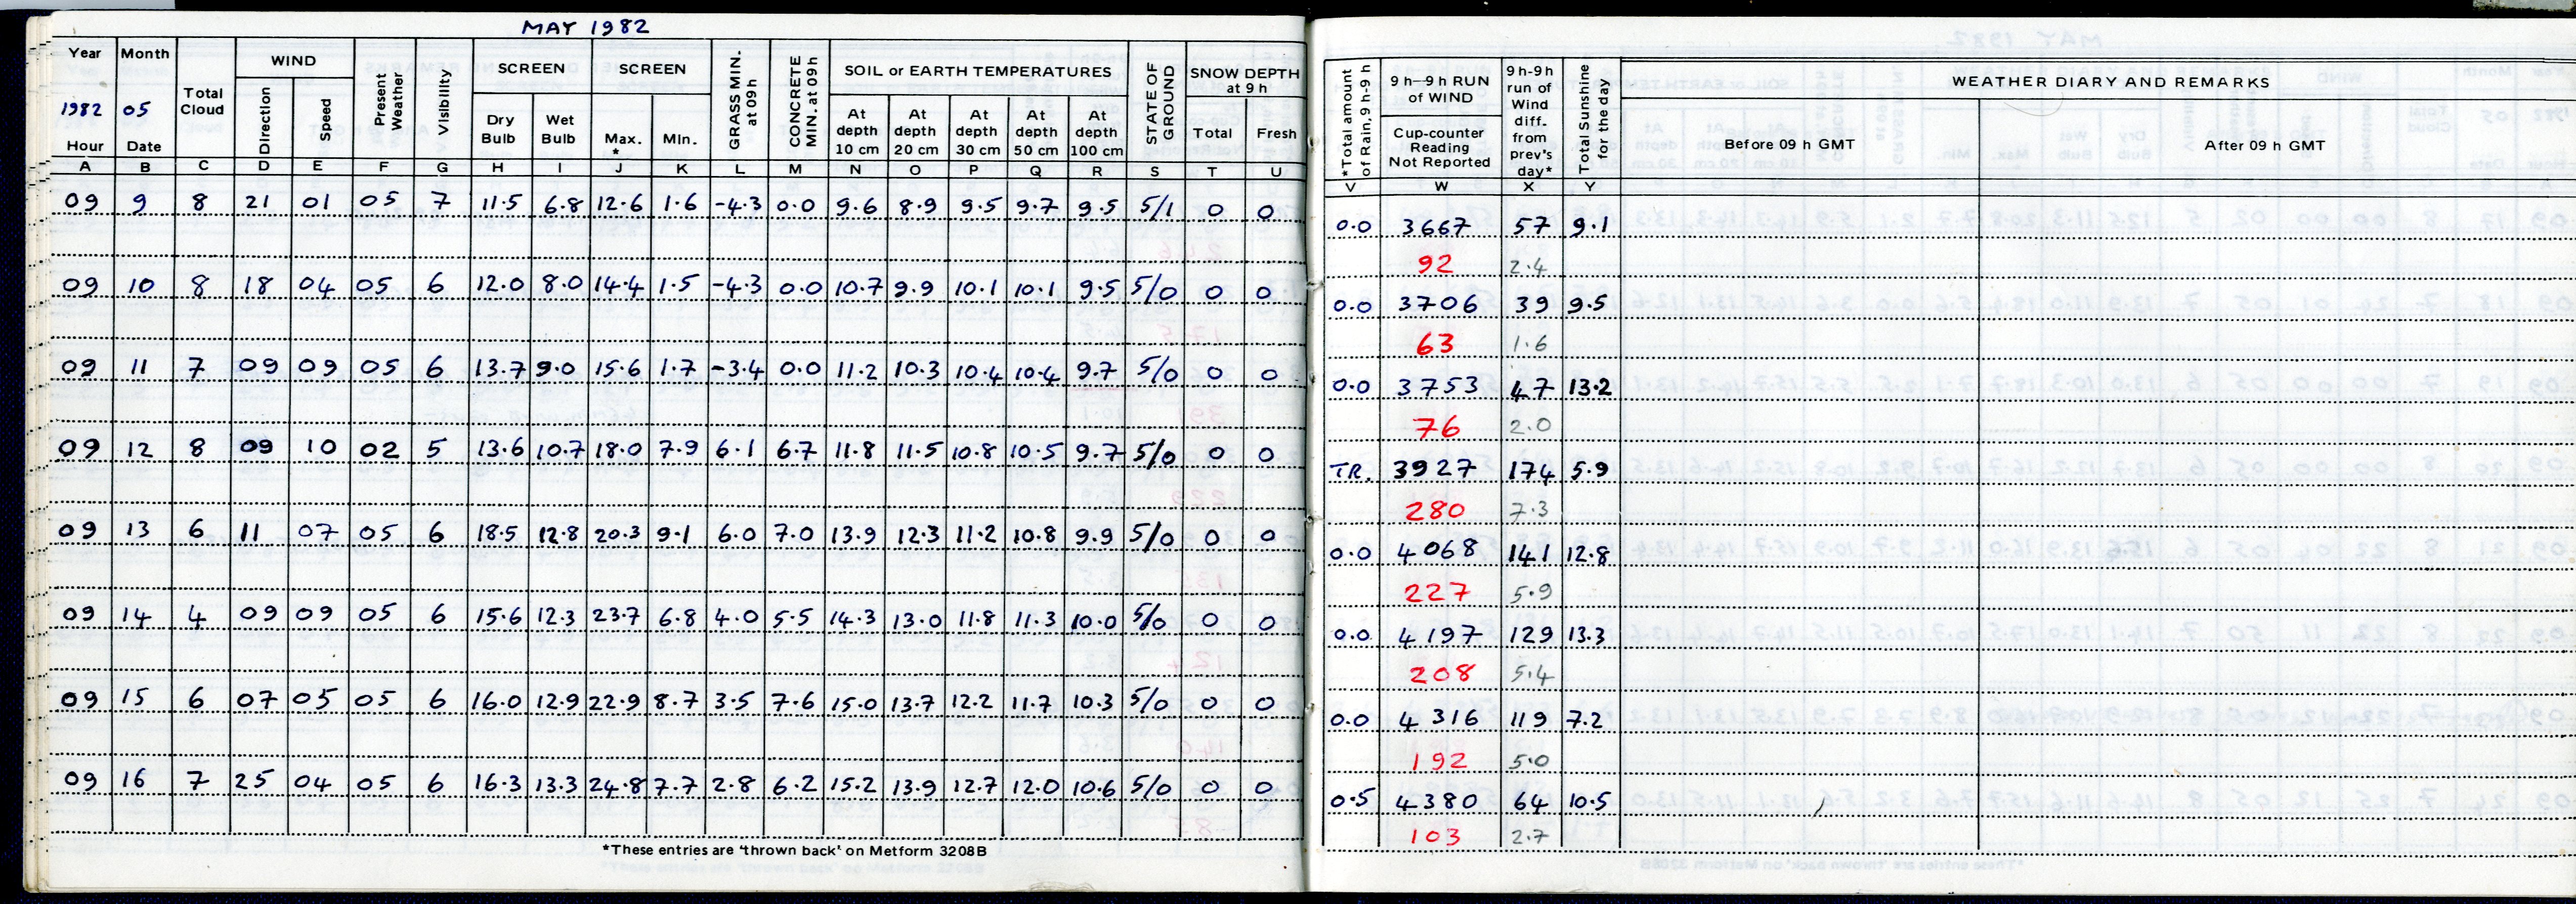 MAY 1982
Year Month Total Cloud WIND Present Weather Visibility SCREEN SCREEN GRASS MIN. at 09h CONCRETE MIN. at 09h SOIL or EARTH TEMPERATURES STATE OF GROUND SNOW DEPTH at 9 h
1982 05 Direction Speed Dry Bulb Wet Bulb Max. * Min. At depth 10 cm At depth 20 cm At depth 30 cm At depth 50 cm At depth 100 cm Total Fresh
Hour Date
A B C D E F G H I J K L M N O P Q R S T U
09 9 8 21 01 05 7 11.5 6.8 12.6 1.6 -4.3 0.0 9.6 8.9 9.5 9.7 9.5 5/1 0 0
09 10 8 18 04 05 6 12.0 8.0 14.4 1.5 -4.3 0.0 10.7 9.9 10.1 10.1 9.5 5/0 0 0
09 11 7 09 09 05 6 13.7 9.0 15.6 1.7 -3.4 0.0 11.2 10.3 10.4 10.4 9.7 5/0 0 0
09 12 8 09 10 02 5 13.6 10.7 18.0 7.9 6.1 6.7 11.8 11.5 10.8 10.5 9.7 5/0 0 0
09 13 6 11 07 05 6 18.5 12.8 20.3 9.1 6.0 7.0 13.9 12.3 11.2 10.8 9.9 5/0 0 0
09 14 4 09 09 05 6 15.6 12.3 23.7 6.8 4.0 5.5 14.3 13.0 11.8 11.3 10.0 5/0 0 0
09 15 6 07 05 05 6 16.0 12.9 22.9 8.7 3.5 7.6 15.0 13.7 12.2 11.7 10.3 5/0 0 0
09 16 7 25 04 05 6 16.3 13.3 24.8 7.7 2.8 6.2 15.2 13.9 12.7 12.0 10.6 5/0 0 0
*These entries are 'thrown back' on Metform 3208B
*Total amount of Rain, 9 h-9 h 9 h—9 h RUN of WIND 9 h-9h run of Wind diff. from prev's day* Total Sunshine for the day WEATHER DIARY AND REMARKS
Cup-counter Reading Not Reported Before 09 h GMT After 09 h GMT
V W X Y
0.0 3667 57 9.1
92 2.4
0.0 3706 39 9.5
63 1.6
0.0 3753 47 13.2
76 2.0
TR. 3927 174 5.9
280 7.3
0.0 4068 141 12.8
227 5.9
0.0 4197 129 13.3
208 5.4
0.0 4316 119 7.2
192 5.0
0.5 4380 64 10.5
103 2.7